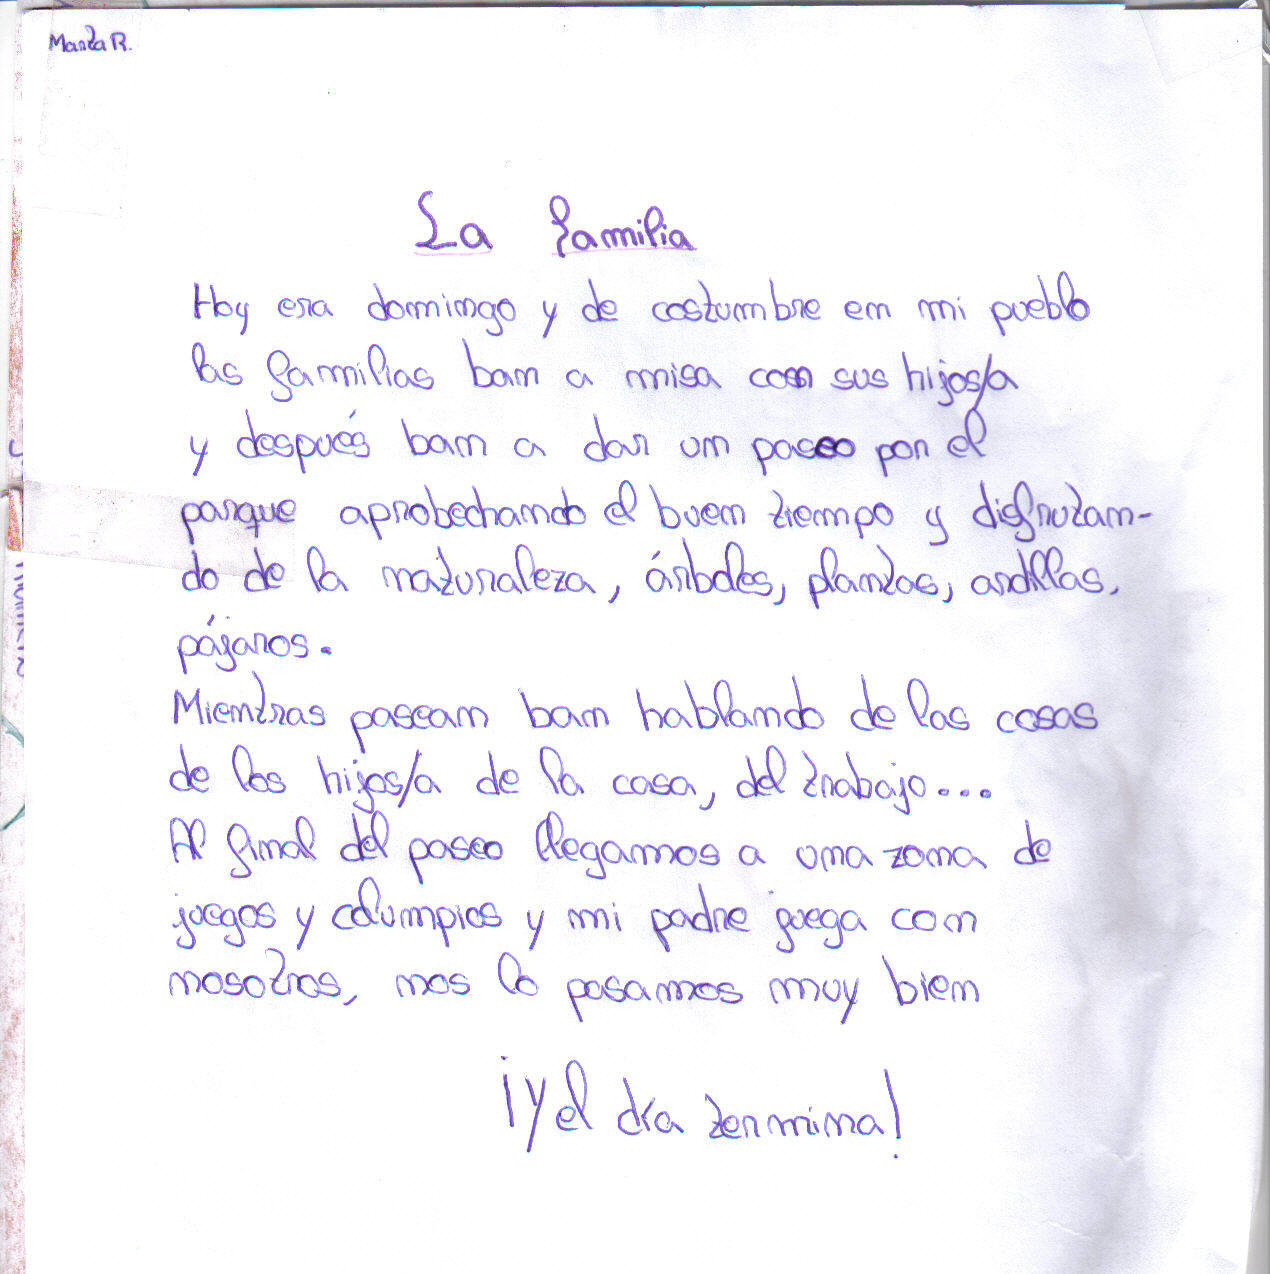 Marta R.
La familia
Hoy era domingo y de costumbre en mi pueblo
las familias ban a misa con sus hijos/a
y después ban a dar un paseo por el
parque aprobechando el buen tiempo y disfrutan-
do de la naturaleza, árboles, plantas, ardillas,
pájaros.
Mientras pasean ban hablando de las cosas
de los hijos/a de la casa, del trabajo...
Al final del paseo llegamos a una zona de
juegos y columpios y mi padre juega con
nosotros, nos lo pasamos muy bien
¡Y el día termina!